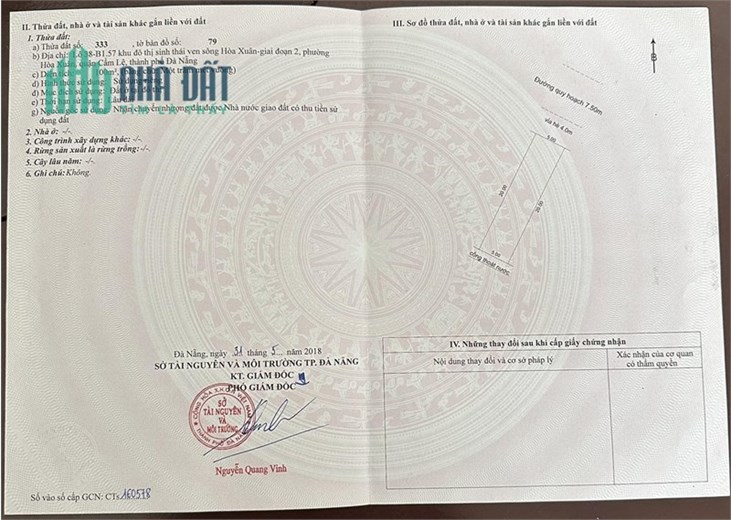 II. Thửa đất, nhà ở và tài sản khác gắn liền với đất
1. Thửa đất:
a) Thửa đất số: 333, tờ bản đồ số: 79
b) Địa chỉ: 38-B1.57 khu đô thị sinh thái ven sông Hòa Xuân-giai đoạn 2, phường
Hòa quận Cẩm Lệ, thành phố Đà Nẵng
c) Diện tích:
d) Hình thức sử dụng:
đ) Mục đích sử dụng:
e) Thời hạn sử dụng:
g) Nguồn gốc sử dụng: Nhận chuyển nhượng đất được Nhà nước giao đất có thu tiền sử
dụng đất
2. Nhà ở: -/-.
3. Công trình xây dựng khác: -/-.
4. Rừng sản xuất là rừng trồng:-/-.
5. Cây lâu năm: -/-.
6. Ghi chú:Không.
NHÀ ĐẤT
Đà Nẵng, ngày 31 tháng 5 năm 2018
SỞ TÀI NGUYÊN VÀ MÔI TRƯỜNG TP. ĐÀ NẴNG
KT. GIÁM ĐỐC
PHÓ GIÁM ĐỐC
SỞ
TÀI NGUYÊN
VÀ
MÔI TRƯỜNG
Nguyễn Quang Vinh
Số vào sổ cấp GCN: CTs 160578
III. Sơ đồ thửa đất, nhà ở và tài sản khác gắn liền với đất
B
Đường quy hoạch 7.50m
vỉa hè 4.0m
5.00
20.00
20.00
5.00
cống thoát nước
IV. Những thay đổi sau khi cấp giấy chứng nhận
Nội dung thay đổi và cơ sở pháp lý
Xác nhận của cơ quan
có thẩm quyền